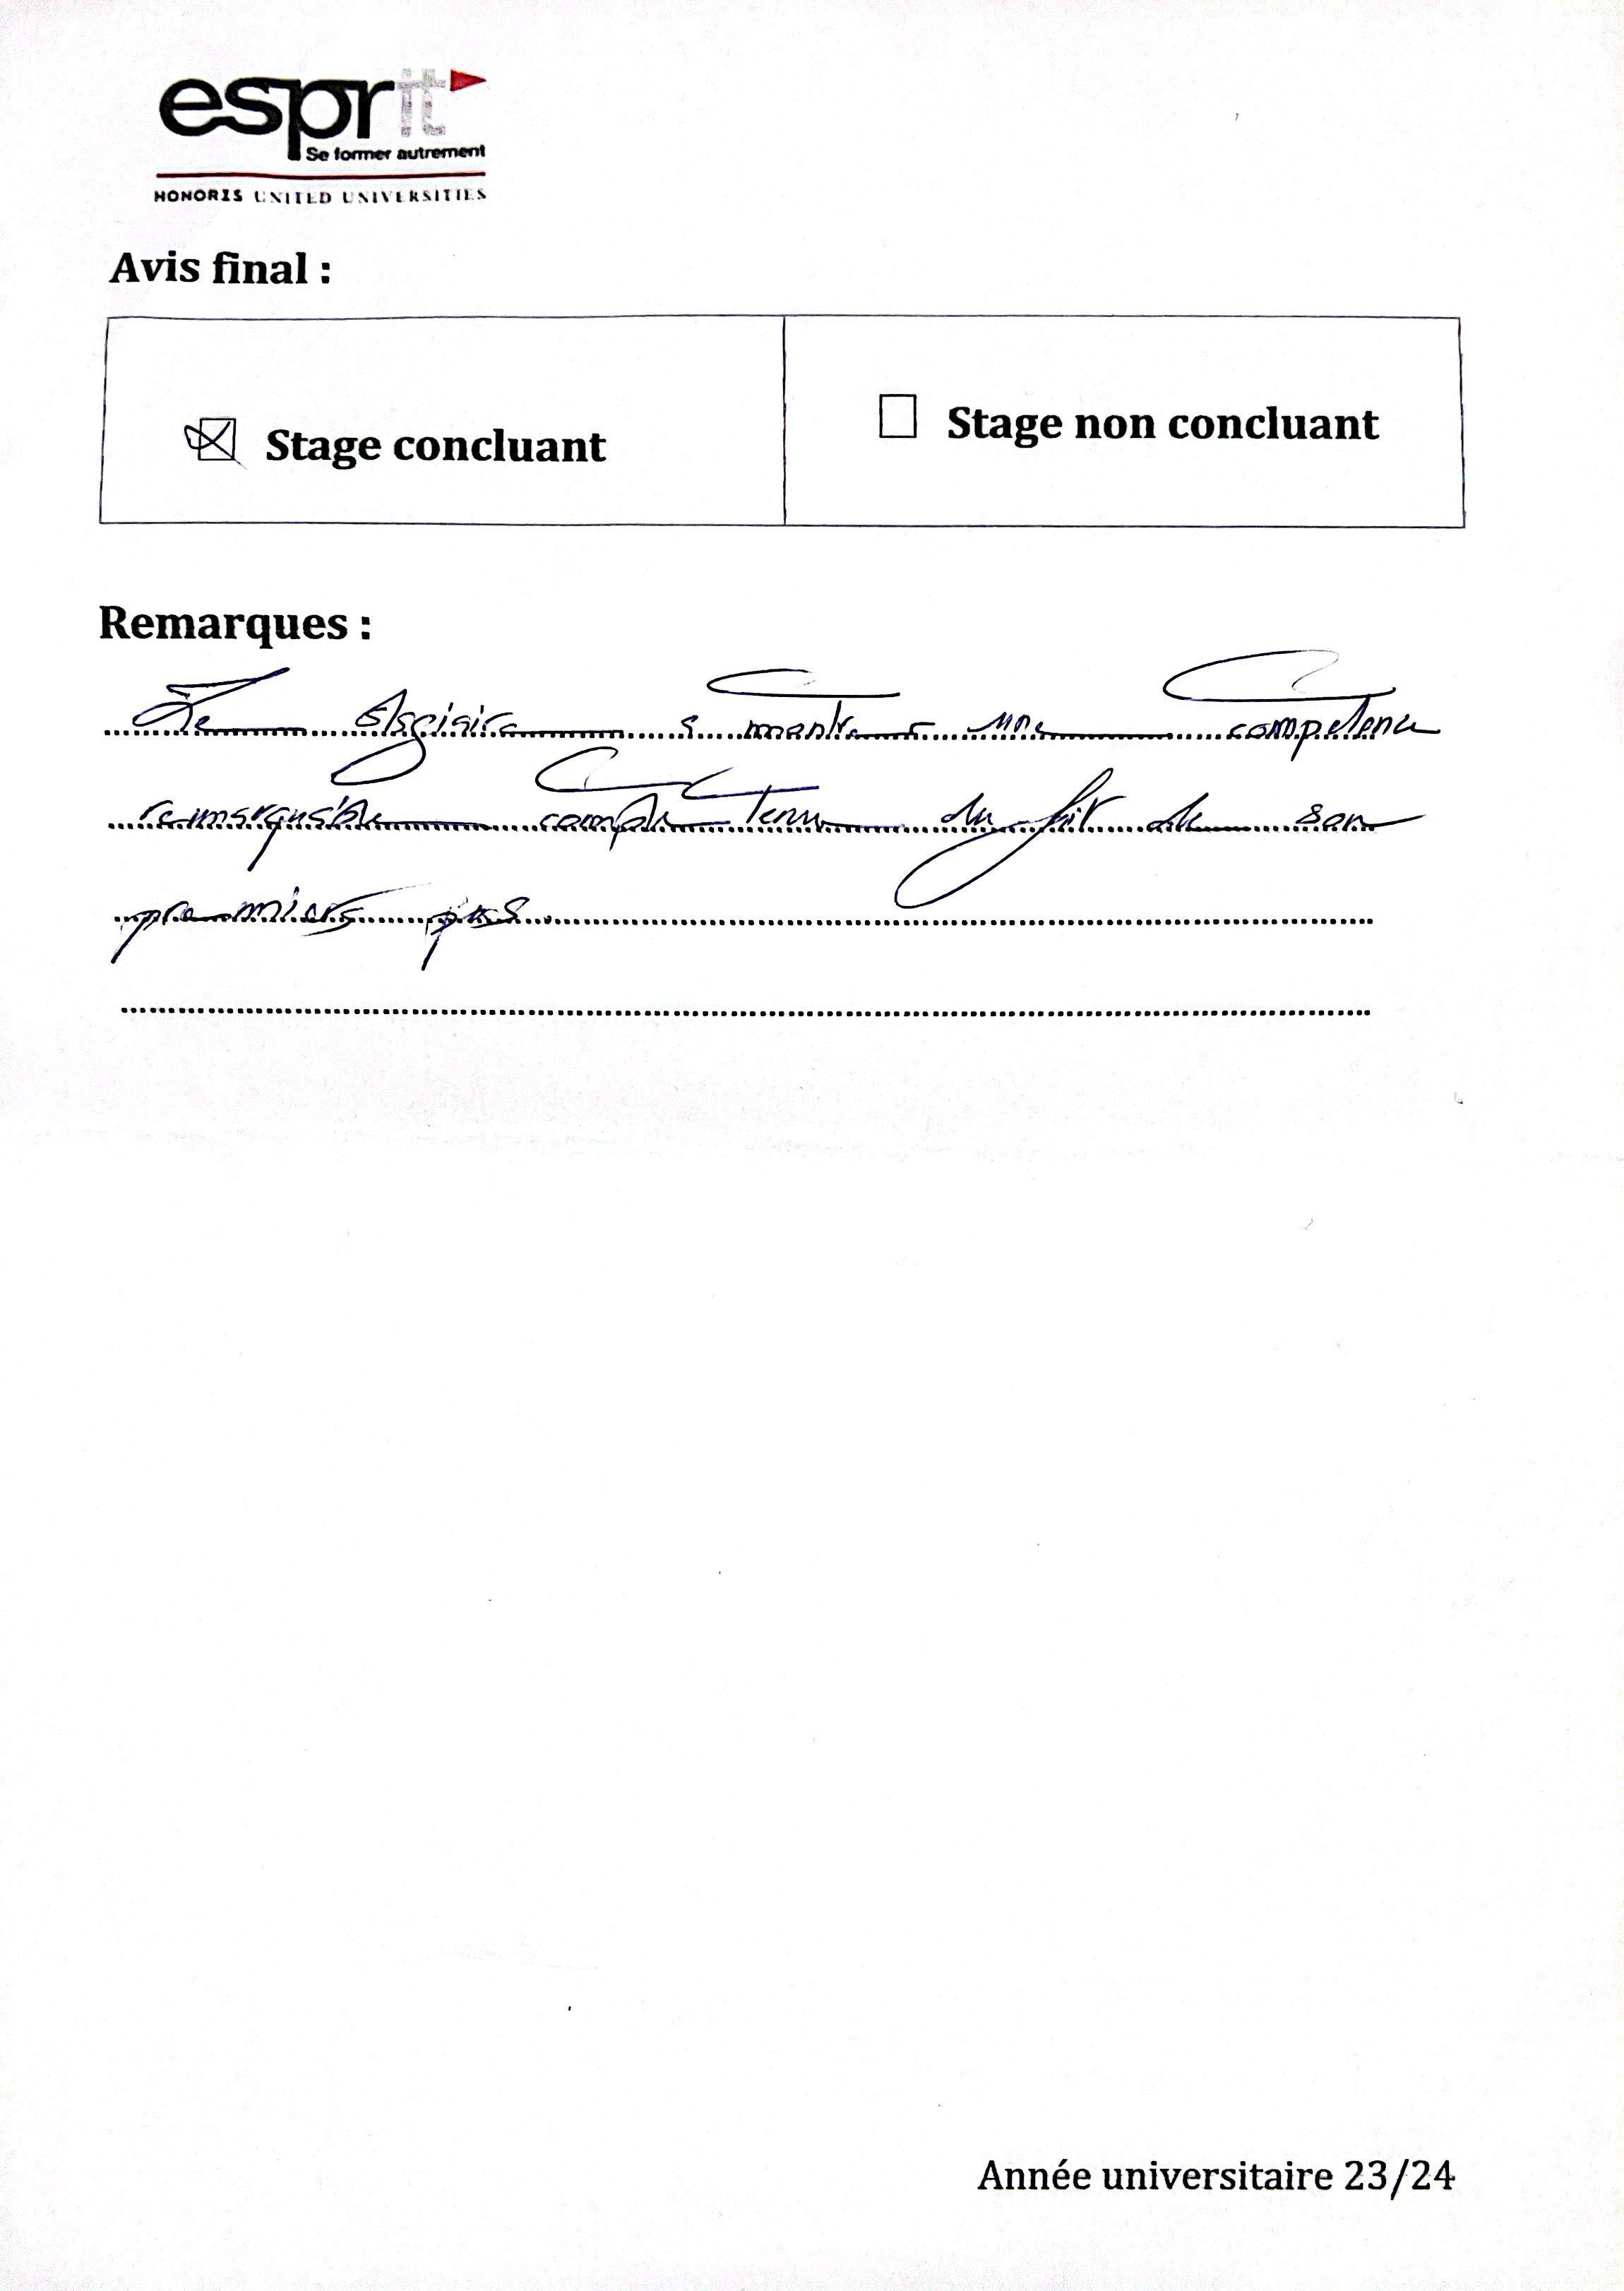 esprit
Se former autrement
HONORIS UNITED UNIVERSITIES
Avis final :
Stage concluant
Stage non concluant
Remarques :
Le a montre une competence
remarquable compte tenu du fait de son
premiers pas.
Année universitaire 23/24